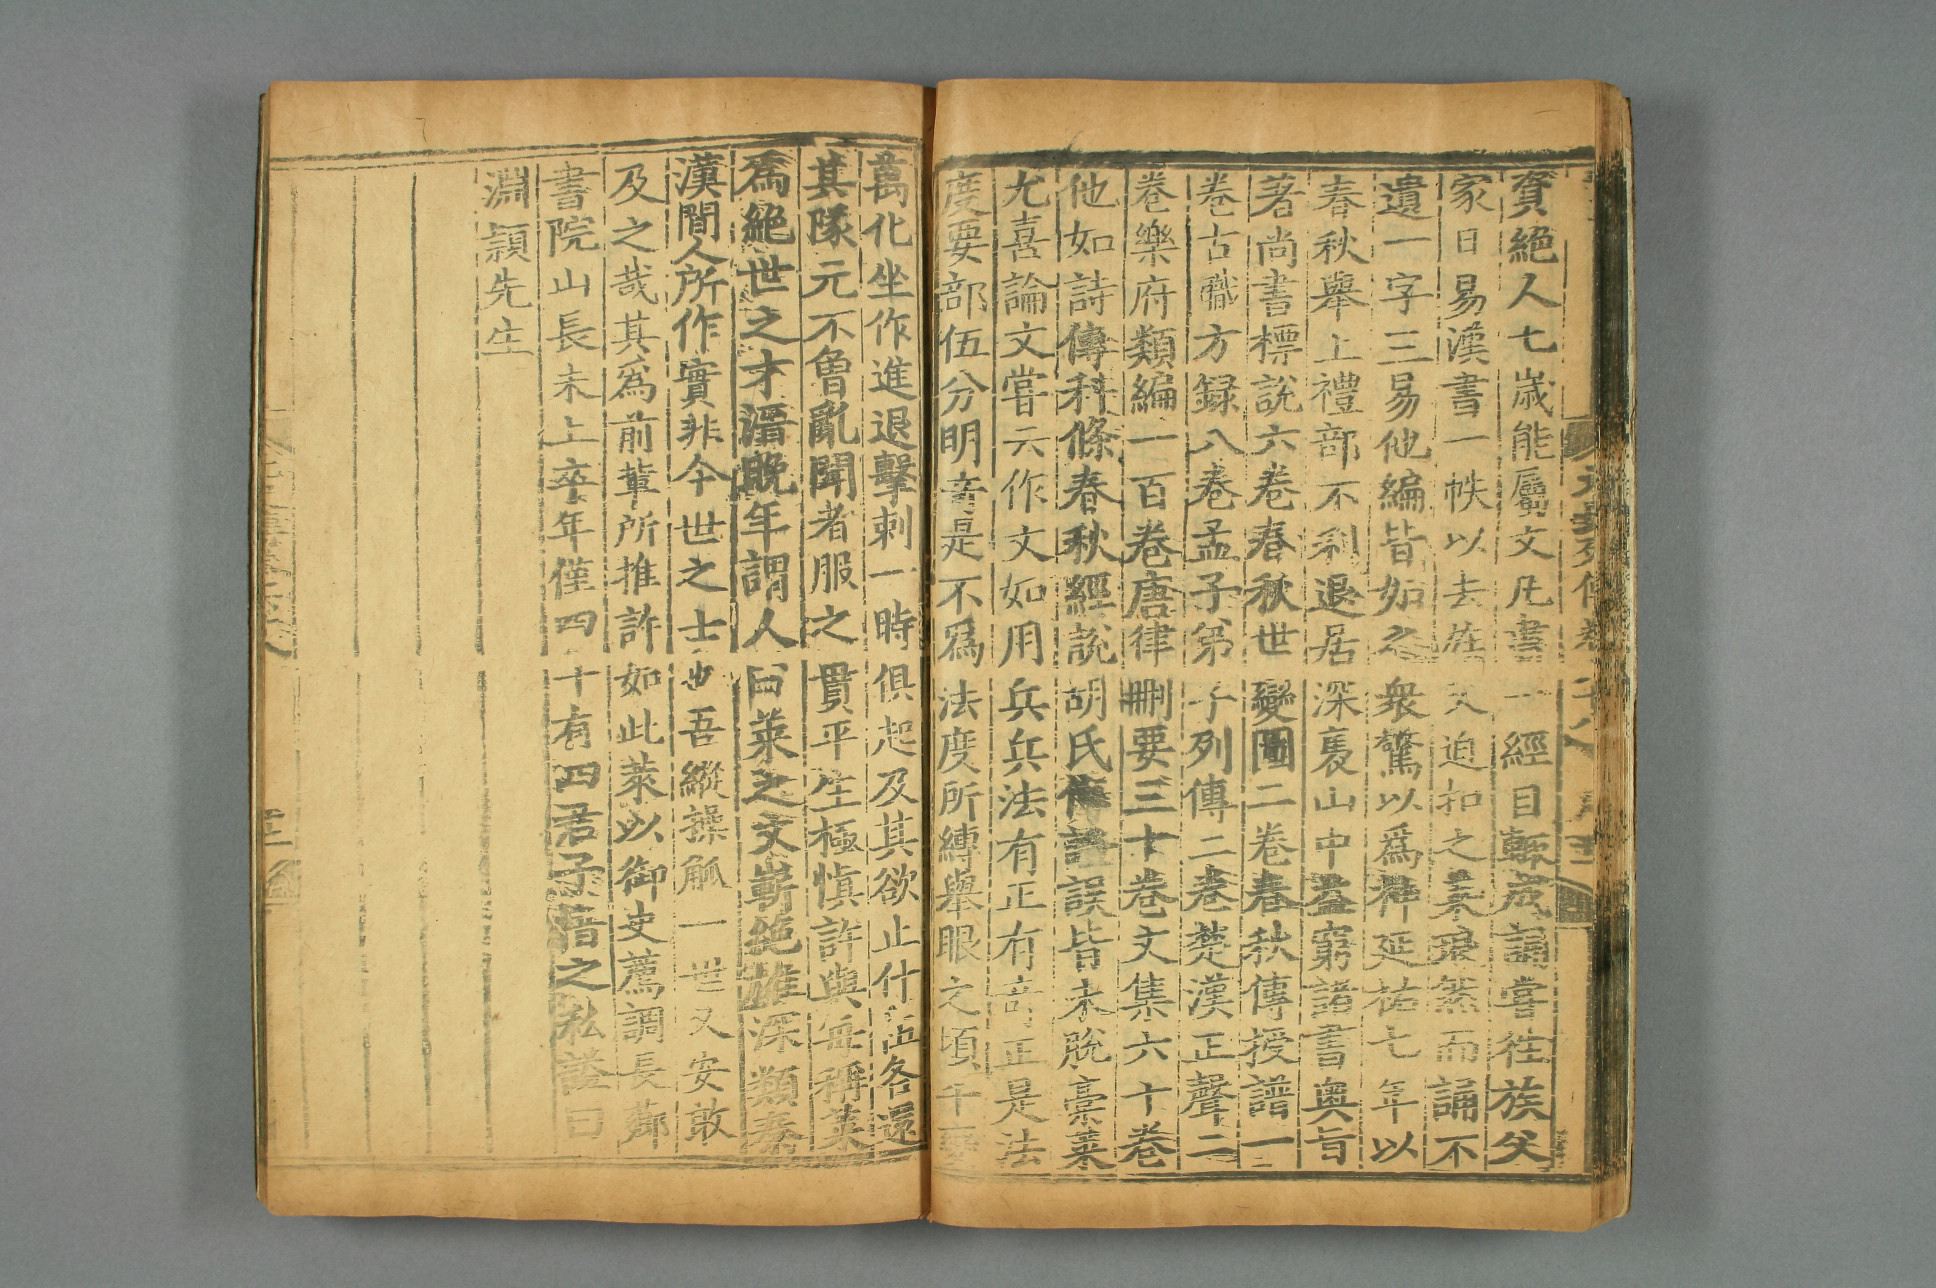 資絕人七歲能屬文凡書一經目輙成誦嘗往族父
家日易漢書一帙以去族父迫扣之萊琅然而誦不
遺一字三易他編皆如之衆驚以爲神延祐七年以
春秋舉上禮部不利退居深褭山中益窮諸書奥旨
著尚書標說六卷春秋世變圖二卷春秋傳授譜一
卷古職方録八卷孟子弟子列傳二卷楚漢正聲二
卷樂府類編一百卷唐律刪要三十卷文集六十卷
他如詩傳科條春秋經說胡氏傳證誤皆未脫藁萊
尤喜論文嘗云作文如用兵兵法有正有竒正是法
度要部伍分明竒是不爲法度所縛舉眼之頃千變
萬化坐作進退擊刺一時俱起及其欲止什伍各還
其隊元不曽亂聞者服之貫平生極慎許與每稱萊
爲絕世之才濂晚年謂人曰萊之文嶄絕雄深類秦
漢間人所作實非今世之士也吾縱操觚一世又安敢
及之哉其爲前軰所推許如此萊以御史薦調長薌
書院山長未上卒年僅四十有四君子惜之私謚曰
淵頴先生
元史列傳卷七十八